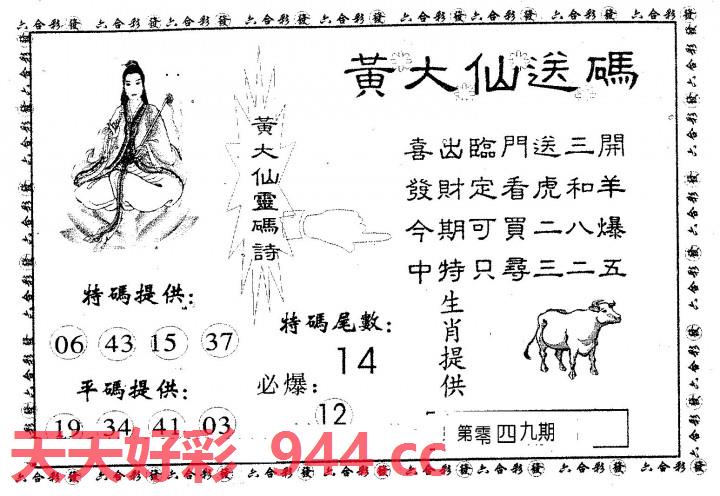 六合彩發 六合彩發 六合彩發 六合彩發 六合彩發 六合彩發 六合彩發 六合彩發 六合彩發
黃大仙送碼
黃大仙靈碼詩
喜出臨門送三開
發財定看虎和羊
今期可買二八爆
中特只尋三二五
特碼提供：
06 43 15 37
平碼提供：
19 34 41 03
特碼尾數：
14
必爆：
12
生肖提供
第零四九期
天天好彩 944.cc